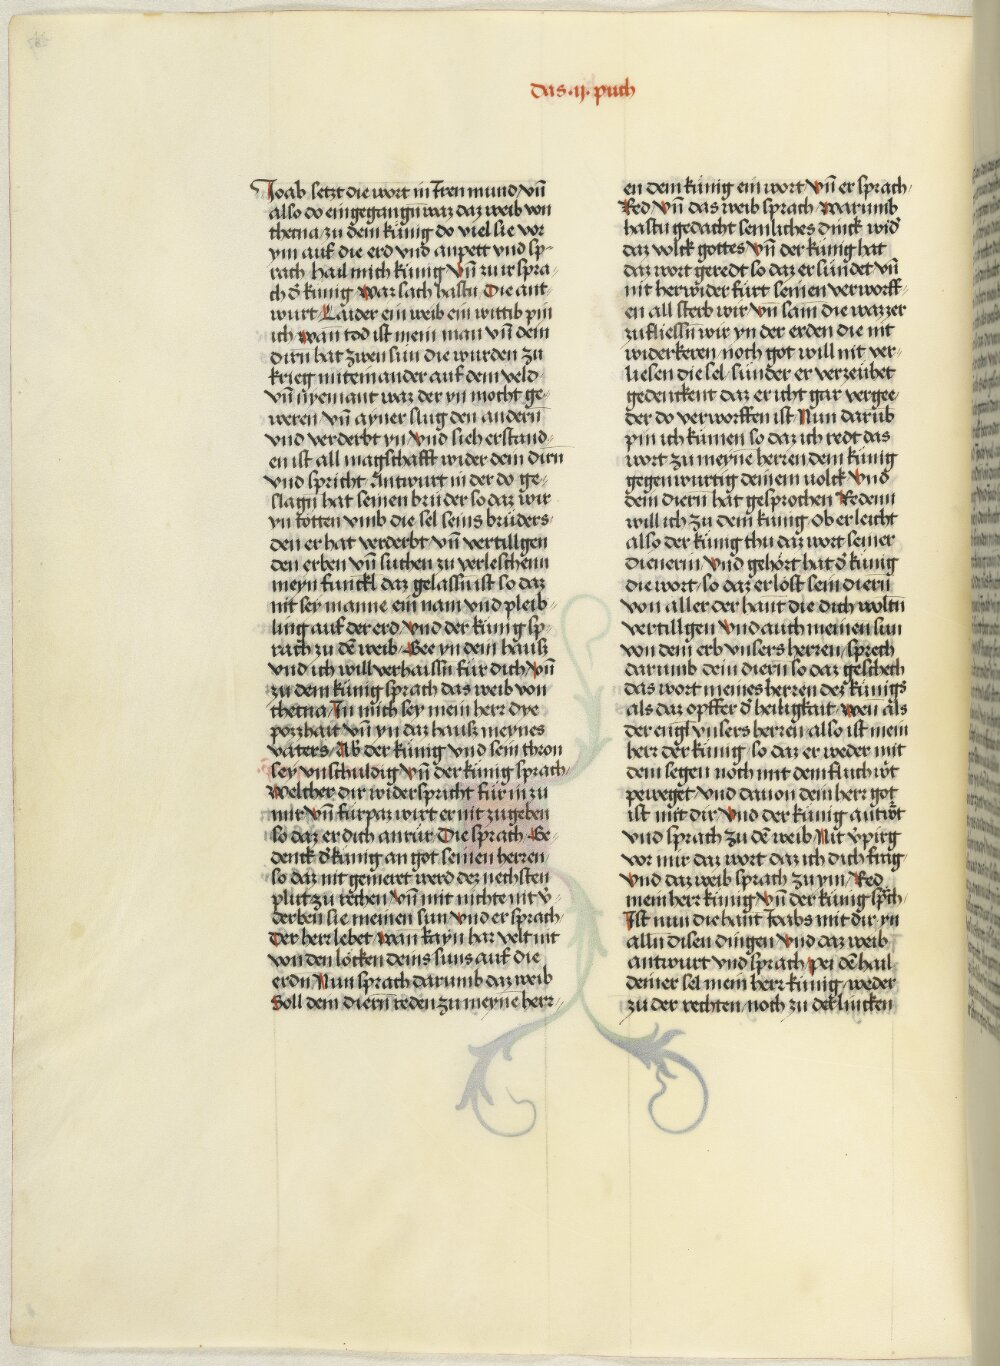 das ·ij· puch
Joab setzt die wort in Iren mund/ vn̄
also do eingegangn̄ waz daz weib von
thetna/ zu dem künig do viel sie vor
ym auf die erd vnd anpett vnd sp-
rach hail mich künig/ Vn̄ zu ir spra-
ch d̄ künig/ Waz sach hastu/ Die ant-
wurt/ Laider ein weib ein wittib pin
ich/ wan tod ist mein man vn̄ dein
dirn hat zwen sün die wurden zu
krieg miteinander auf dem veld
vn̄ nyemant waz der yn mocht ge-
weren/ vn̄ ayner slug den andern
vnd verderbt yn/ Vnd sieh erstand-
en ist all magschafft wider dein dirn
vnd spricht/ Antwurt in der do ge-
slagn̄ hat seinen brüder so daz wir
yn tötten vmb die sel seins brüders
den er hat verderbt/ vn̄ vertillgen
den erben/ vn̄ suchen zu verleschenn
meyn funckl daz gelassn̄ ist so daz
nit sey manne ein nam vnd pleib-
ling auf der erd/ Vnd der künig sp-
rach zu dē weib/ Gee yn dein hauß
vnd ich will verhaissn̄ für dich/ Vn̄
zu dem künig sprach das weib von
thetna/ In mich sey mein herr dye
poßhait/ vn̄ yn daz hauß meynes
vaters/ Ab der künig vnd sein thron
sey vnschuldig/ Vn̄ der künig sprach
Welcher dir widerspricht für in zu
mir/ Vn̄ fürpaz wirt er nit zugeben
so daz er dich anrür/ Die sprach/ Ge-
denck d̄ künig an got seinen herren
so daz nit gemeret werd dez nechsten
plut zu rechen/ Vn̄ mit nichte nit v̄-
derben sie meinen sun/ Vnd er sprach
Der herr lebet/ Wan kayn har velt nit
von den löcken deins suns auf die
erdn̄/ Nun sprach darumb daz weib
Soll dein diern reden zu meyne herr-
en dem künig ein wort/ Vn̄ er sprach
Red/ Vn̄ das weib sprach/ Warumb
hastu gedacht semliches dinck wid̄
daz volck gottes/ Vn̄ der künig hat
daz wort geredt so daz er sündet vn̄
nit herwider fürt seinen verworff-
en all sterb wir/ vn̄ sam die wazzer
zufliessn̄ wir yn der erden die nit
widerkeren/ noch got will nit ver-
liesen die sel/ sunder er verzeühet
gedenckent daz er icht gar vergee
der do verworffen ist/ Nun darüb
pin ich kumen so daz ich redt das
wort zu meyne herren dem künig
gegenwurtig deinem volck/ Vnd
dein diern hat gesprochen/ Redenn
will ich zu dem künig/ Ob er leicht
also der künig thu daz wort seiner
dienerin/ Vnd gehört hat d̄ künig
die wort/ so daz er löst sein diern
von aller der hant die dich woltn̄
vertillgen/ Vnd auch meinen sun
von dem erb vnsers herren/ sprech
darumb dein diern so daz geschech
das wort meines herren dez künigs
als daz opffer d̄ heiligkait/ Wen als
der engl vnsers herren/ also ist mein
herr der künig/ so daz er weder mit
dem segen noch mit dem fluch wirt
peweget/ Vnd dauon dein herr got
ist mit dir/ Vnd der künig antwirt
vnd sprach zu dē weib/ Nit v̄pirg
vor mir daz wort daz ich dich frag
Vnd daz weib sprach zu ym/ Red
mein herr künig/ Vn̄ der künig sp̄ch
Ist nun die hant Joabs mit dir yn
alln̄ disen dingen/ Vnd daz weib
antwurt vnd sprach/ Pei dē hail
deiner sel mein herr künig/ weder
zu der rechten/ noch zu der lincken